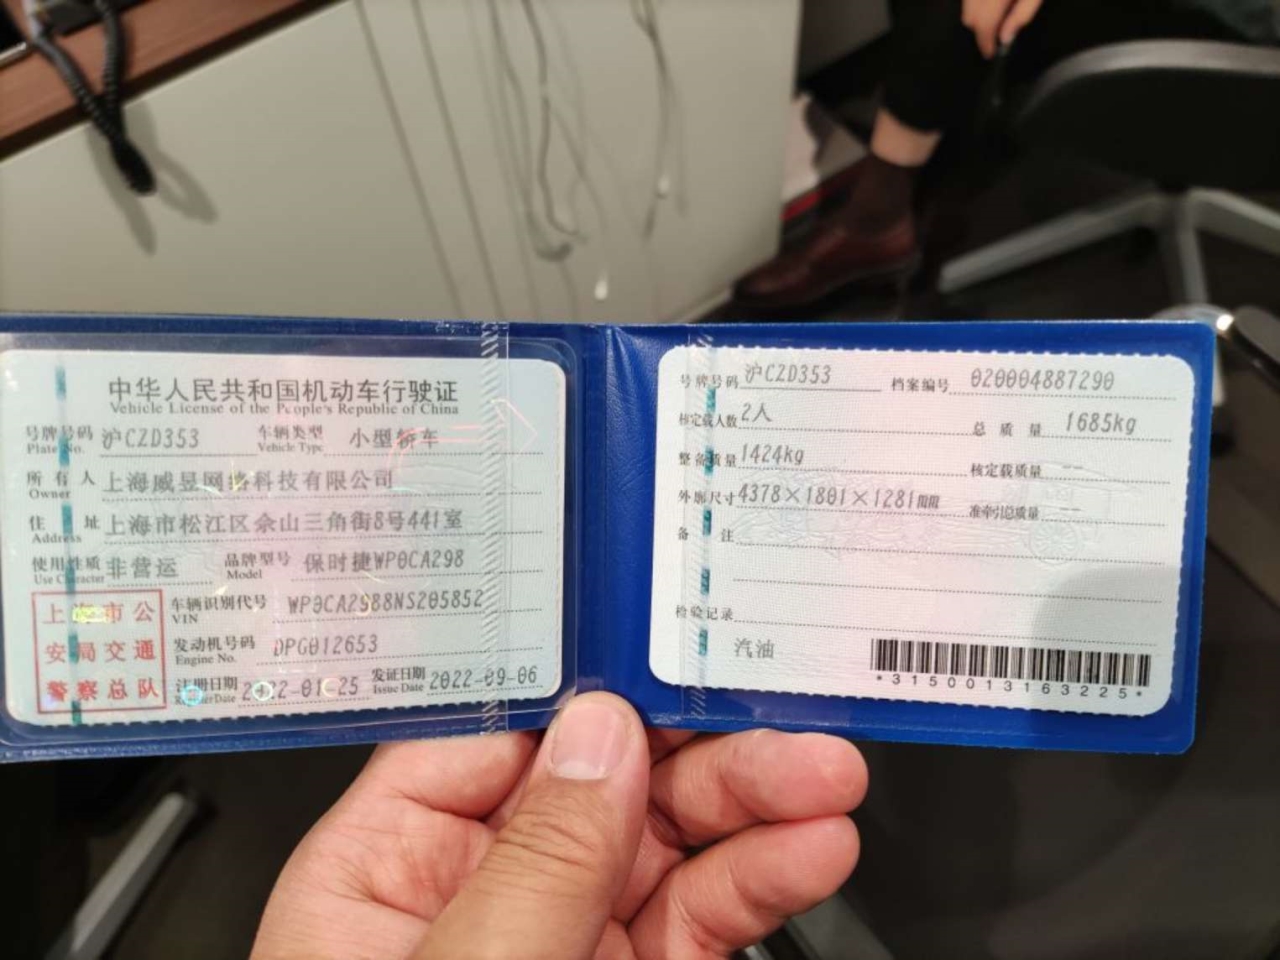 中华人民共和国机动车行驶证
Vehicle License of the People's Republic of China
号牌号码 沪CZD353 车辆类型 小型轿车
Plate No. Vehicle Type
所有人 上海威昱网络科技有限公司
Owner
住址 上海市松江区佘山三角街8号441室
Address
使用性质 非营运 品牌型号 保时捷WP0CA298
Use Character Model
上海市公
安局交通
警察总队
车辆识别代号 WP0CA2988NS205852
VIN
发动机号码 DPG012653
Engine No.
注册日期 2022-01-25 发证日期 2022-09-06
Register Date Issue Date
号牌号码 沪CZD353 档案编号 020004887290
核定载人数 2人 总质量 1685kg
整备质量 1424kg 核定载质量 --
外廓尺寸 4378×1801×1281mm 准牵引总质量 --
备注
检验记录
汽油
*3150013163225*